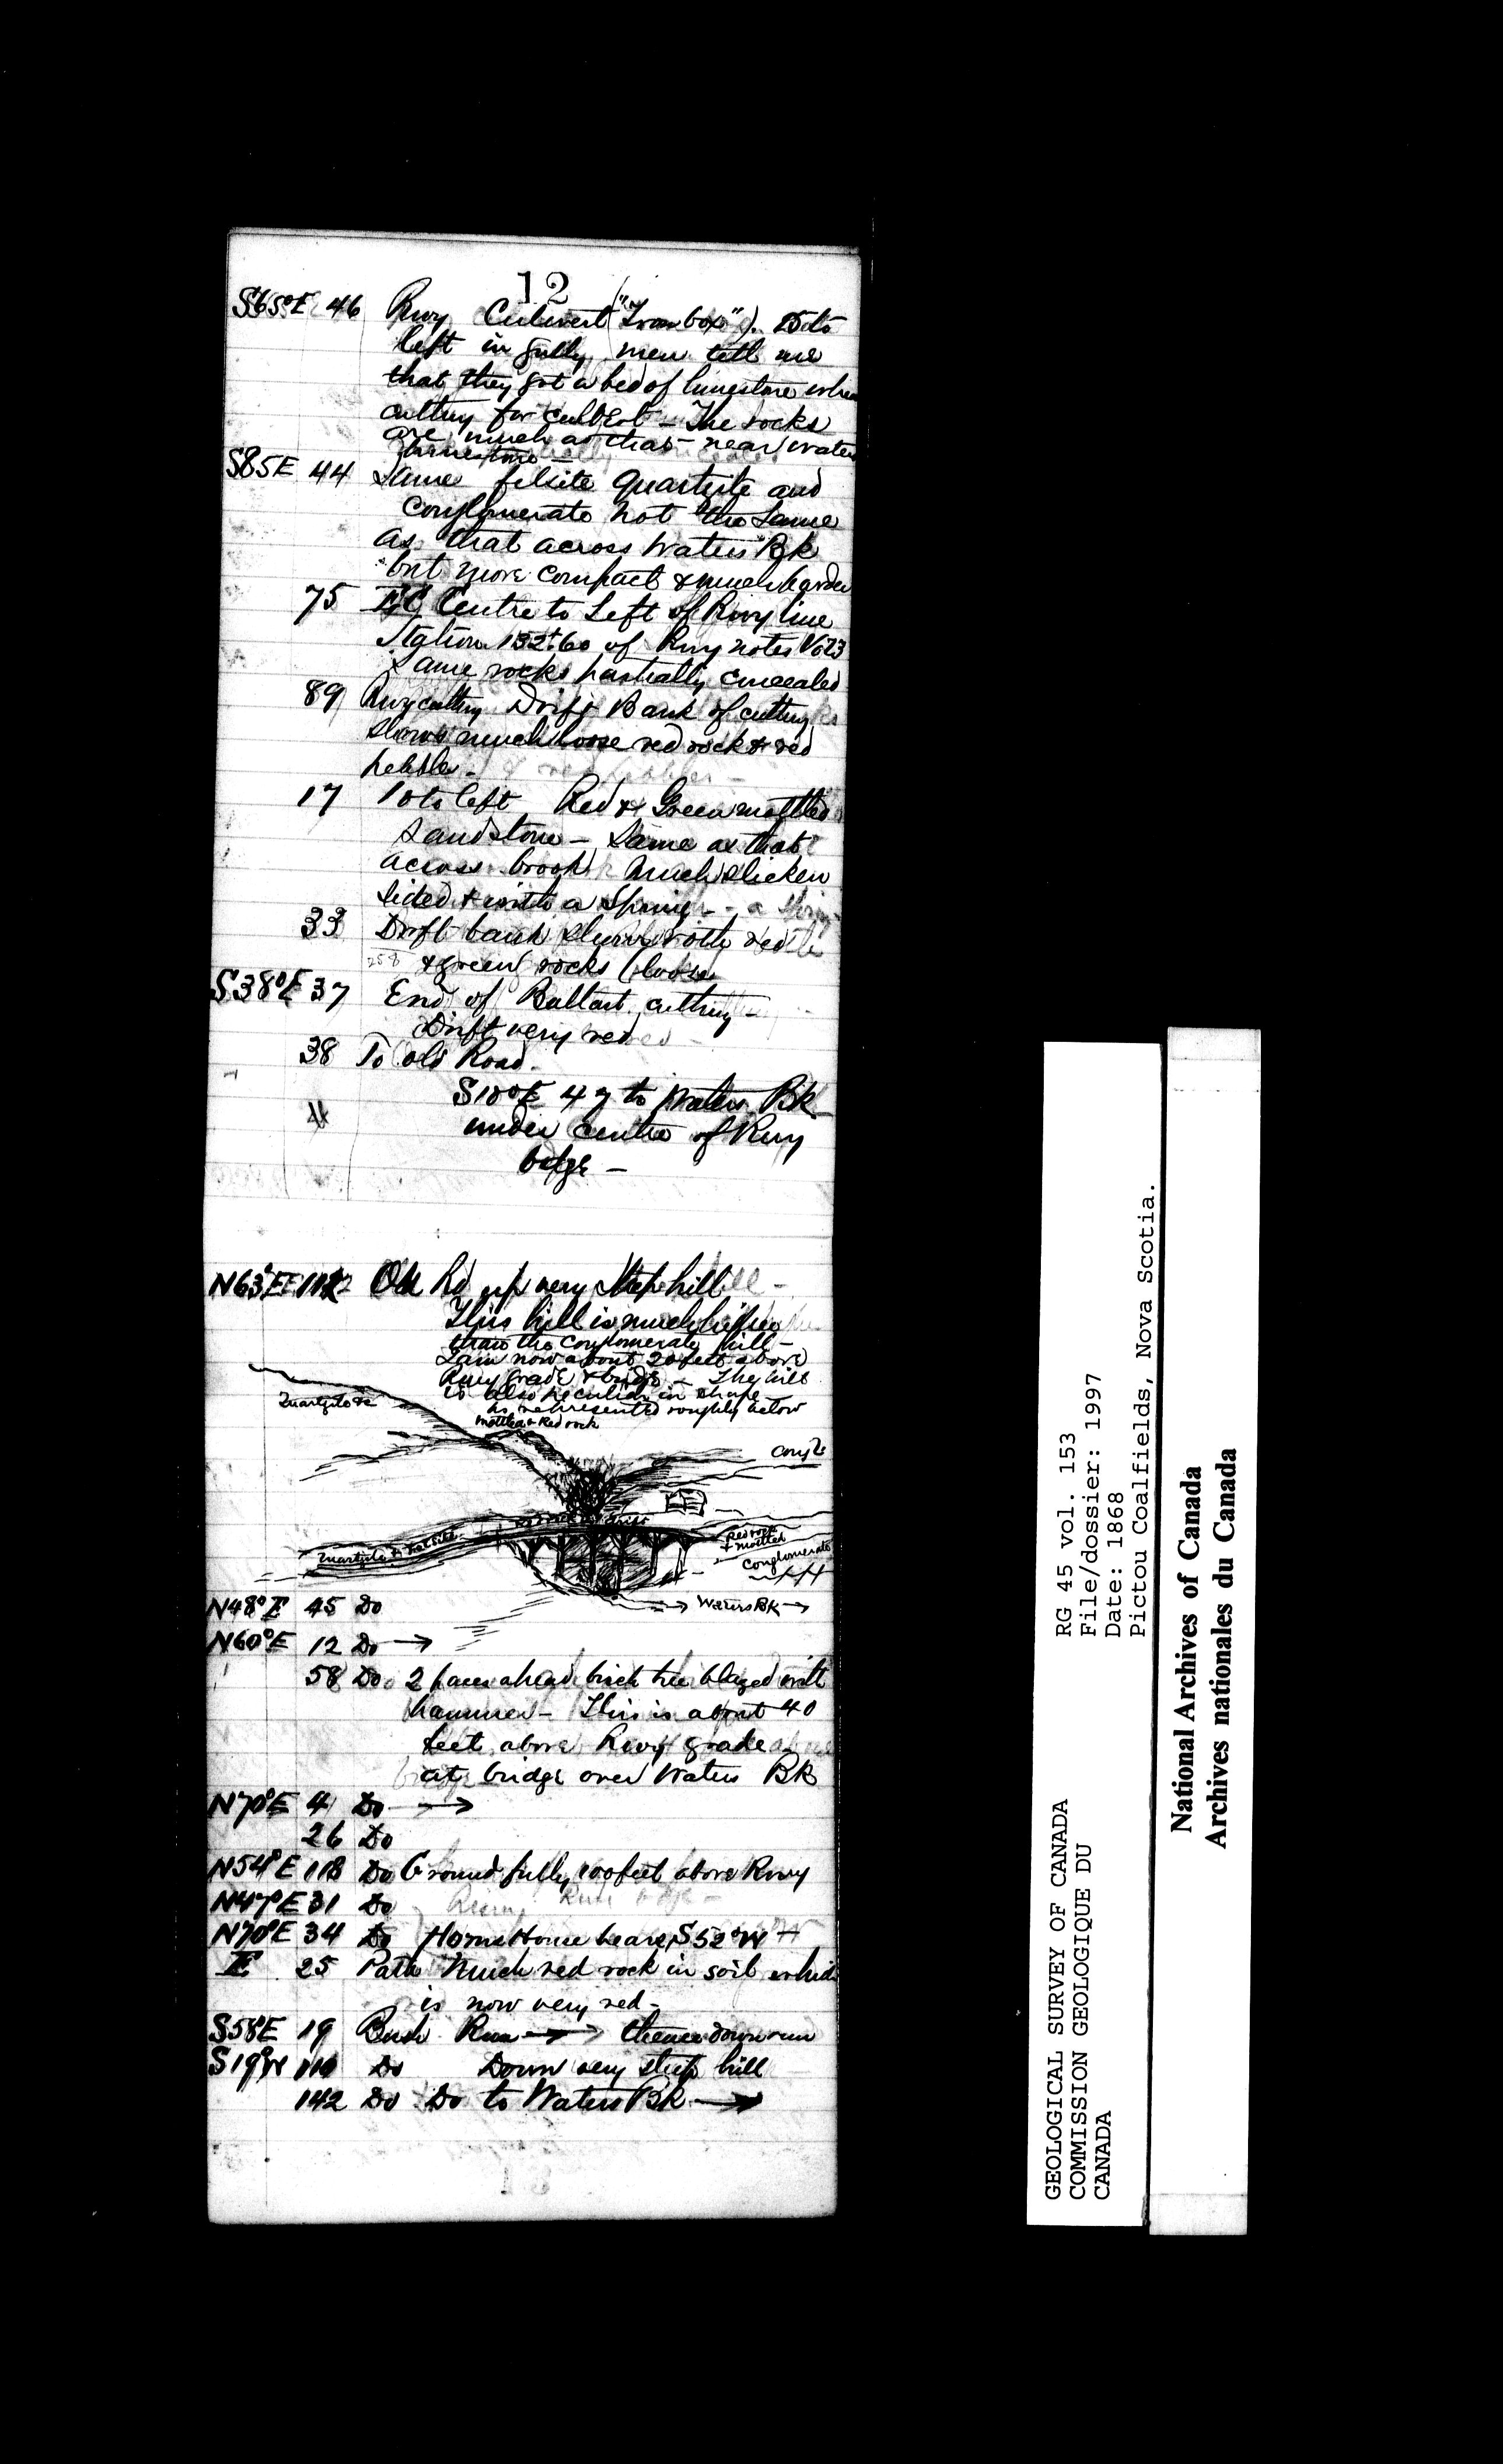 12
S65°E 46 Rwy Culvert ("Iron box"). 15 to
left in gully men tell me
that they got a bed of limestone when
cutting for culvert – The rocks
are much as that near Waters
limestone –
S85E 44 Same felsite quartzite and
Conglomerate not "the same
as" that across Waters Bk
but more compact & much harder
75 Centre to Left of Rwy line
Station 132+60 of Rwy notes Vol 3
Same rocks partially concealed
89 Rwy cutting Drift Bank of cutting
shows much loose red rock & red
pebbles –
17 10 to left Red & Green mottled
Sandstone – Same as that
across brook Much slicken
sided & with a Spring –
33 Drift bank shews both red
258 & green rocks (loose
S38°E 37 End of Ballast cutting –
Drift very red
38 To old Road.
S10°E 47 to Waters Bk
under centre of Rwy
bdge –
N63°E 112 Old Rd up very steep hill
This hill is much higher
than the conglomerate hill –
I am now about 20 feet above
Rwy grade & bridge – The hill
is also peculiar in shape
as represented roughly below
Quartzite &c
Mottled & Red rock
Congl
Quartzite & Felsite
Red rock
& mottled
Conglomerate
N48°E 45 Do
→ Waters Bk →
N60°E 12 Do →
58 Do 2 paces ahead birch tree blazed with
hammer – This is about 40
feet above Rwy grade
at bridge over Waters Bk
N70°E 4 Do →
26 Do
N54°E 118 Do Ground fully 100 feet above Rwy
N47°E 31 Do
N70°E 34 Do Horne House bears S52°W
E 25 Path Much red rock in soil which
is now very red –
S58°E 19 Bush Run → thence down run
S19°W 110 Do Down very steep hill
142 Do Do to Waters Bk →
GEOLOGICAL SURVEY OF CANADA
COMMISSION GEOLOGIQUE DU
CANADA
RG 45 vol. 153
File/dossier: 1997
Date: 1868
Pictou Coalfields, Nova Scotia.
National Archives of Canada
Archives nationales du Canada